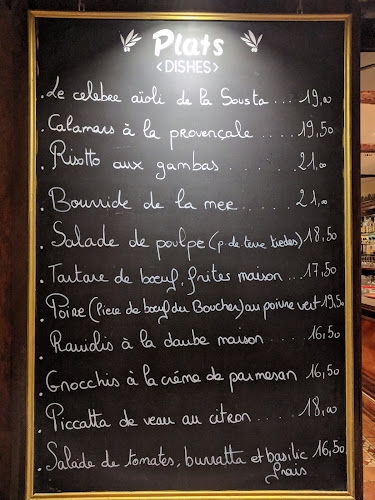 Plats
<DISHES>
. Le celebre aïoli de la Sousta .... 19,00
. Calamars à la provençale ..... 19,50
. Risotto aux gambas ...... 21,00
. Bourride de la mer ..... 21,00
. Salade de poulpe (p. de terre tiedes) 18,50
. Tartare de bœuf, frites maison ... 17,50
. Poire (Pièce de bœuf du Boucher) au poivre vert 19,50
. Raviolis à la daube maison .... 16,50
. Gnocchis à la crème de parmesan 16,50
. Piccatta de veau au citron .... 18,00
. Salade de tomates, burratta et basilic 16,50
frais